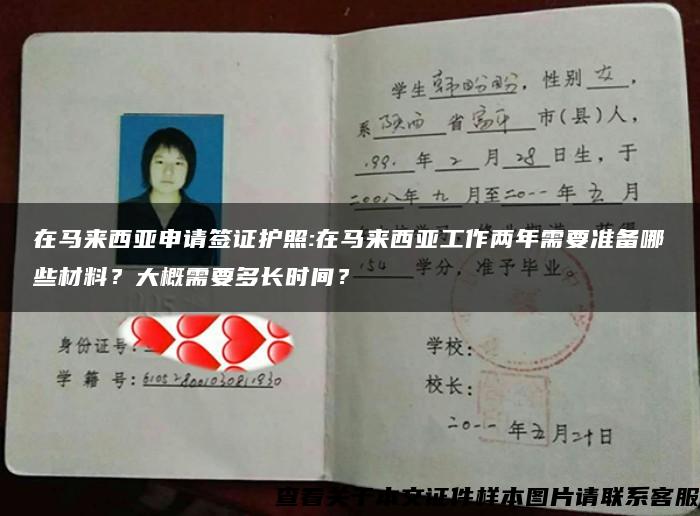 学生韩盼盼，性别女，
系陕西省富平市(县)人，
1991年2月28日生，于
二00八年九月至二0一一年五月
在马来西亚申请签证护照:在马来西亚工作两年需要准备哪
些材料？大概需要多长时间？
154学分，准予毕业。
身份证号:
学籍号:6105280010308111930
学校:
校长:
二0一一年五月二十日
查看关于本文证件样本图片请联系客服